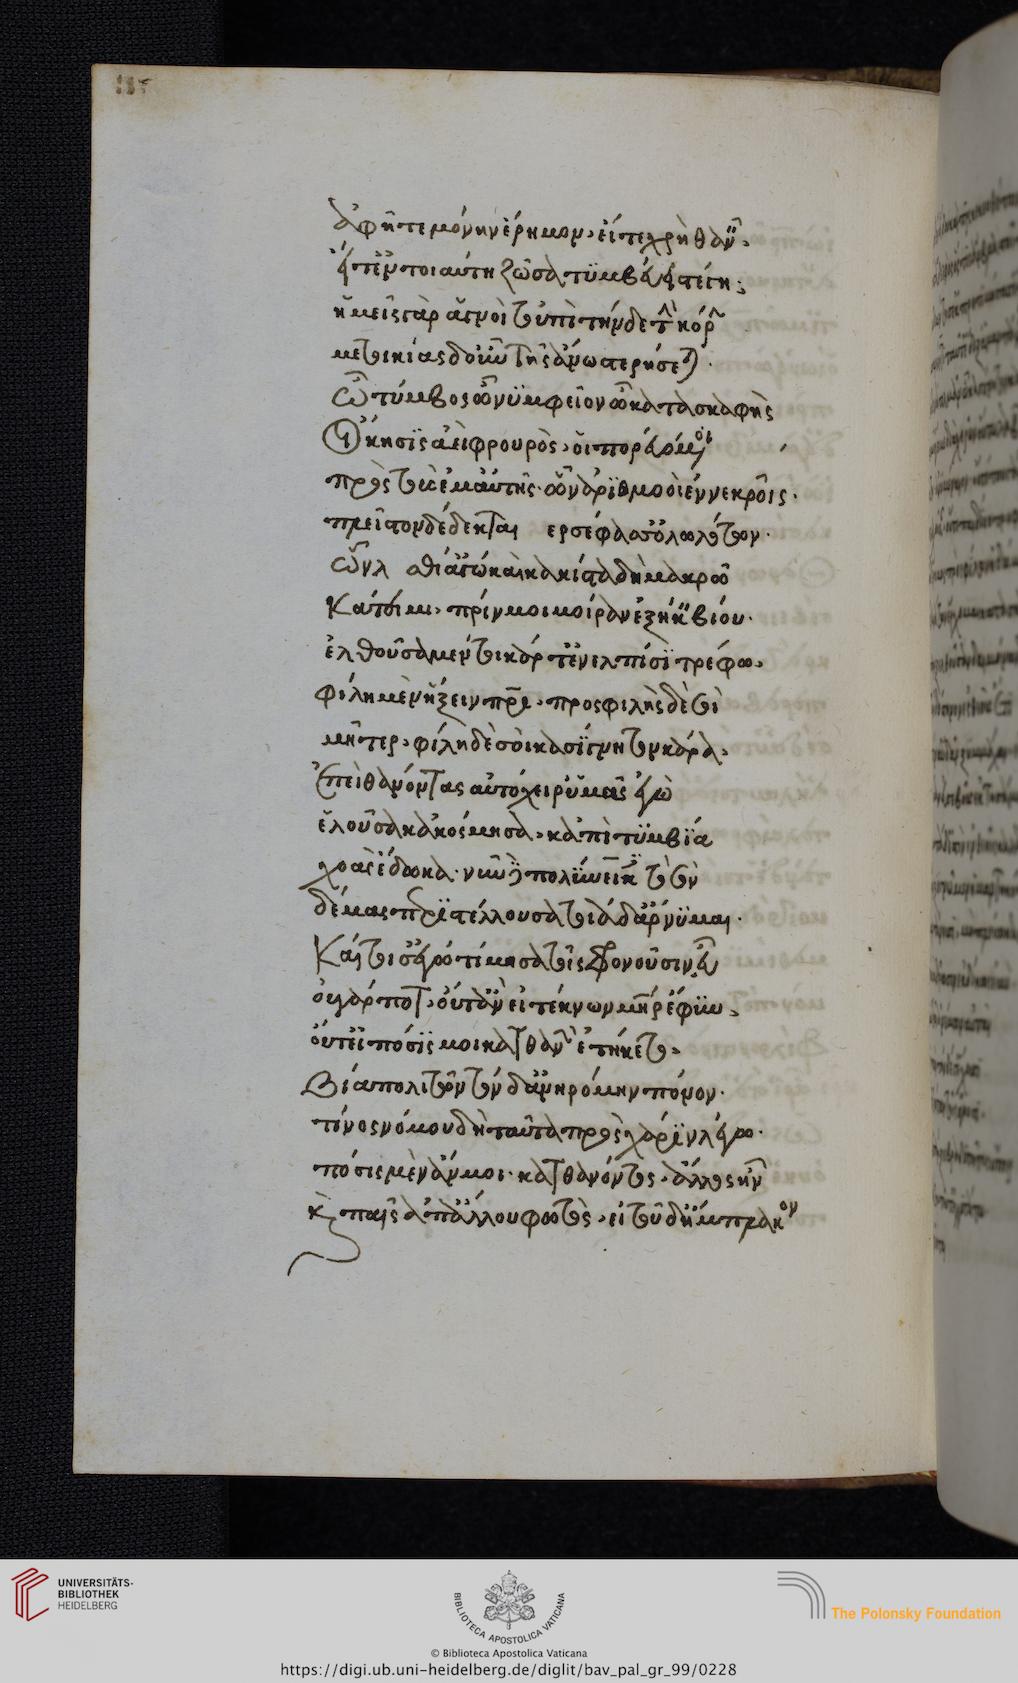 ἀφῆτε μόνην ἔρημον· εἴτε χρὴ θανεῖν·
εἴτ' ἐν τοιαύτη ζῶσα τυμβεύειν στέγη·
ἡμεῖς γὰρ ἁγνοὶ τοὐπὶ τήνδε τὴν κόρην
μετοικίας δ' οὖν τῆς ἄνω στερήσεται·
ὦ τύμβος ὦ νυμφεῖον ὦ κατασκαφὴς
οἴκησις ἀείφρουρος· οἷ πορεύομαι
πρὸς τοὺς ἐμαυτῆς· ὧν ἀριθμὸν ἐν νεκροῖς·
πλεῖστον δέδεκται ερσέφασσ' ὀλωλότων·
ὧν λ οθία 'γὼ καὶ κάκιστα δὴ μακρῶ
κάτειμι· πρίν μοι μοῖραν ἐξήκειν βίου·
ἐλθοῦσα μέντοι κάρτ' ἐν ἐλπίσι τρέφω·
φίλη μὲν ἥξειν πρὶ· προσφιλὴς δὲ σοὶ
μῆτερ· φίλη δὲ σοὶ κασίγνητον κάρα·
ἐπεὶ θανόντας αὐτόχειρ ὑμᾶς ἐγὼ
ἔλουσα κἀκόσμησα· κἀπιτυμβίους
χοὰς ἔδωκα· νῦν δὲ πολύνεικες τὸ σὸν
δέμας περιστέλλουσα τοιάδ' ἄρνυμαι·
καίτοι σ' ἐγὼ 'τίμησα τοῖς φρονοῦσιν εὖ
οὐ γάρ ποτ'· οὔτ' ἂν εἰ τέκνων μῆτηρ ἔφυν·
οὔτ' εἰ πόσις μοι κατθανὼν ἐτήκετο·
βίᾳ πολιτῶν τόνδ' ἂν ἠρόμην πόνον·
τίνος νόμου δὴ ταῦτα πρὸς χάριν λέγω·
πόσις μὲν ἄν μοι· κατθανόντος· ἄλλος ἦν
καὶ παῖς ἀπ' ἄλλου φωτὸς· εἰ τοῦδ' ἤμπλακον
UNIVERSITÄTS-
BIBLIOTHEK
HEIDELBERG
BIBLIOTECA APOSTOLICA VATICANA
The Polonsky Foundation
© Biblioteca Apostolica Vaticana
https://digi.ub.uni-heidelberg.de/diglit/bav_pal_gr_99/0228